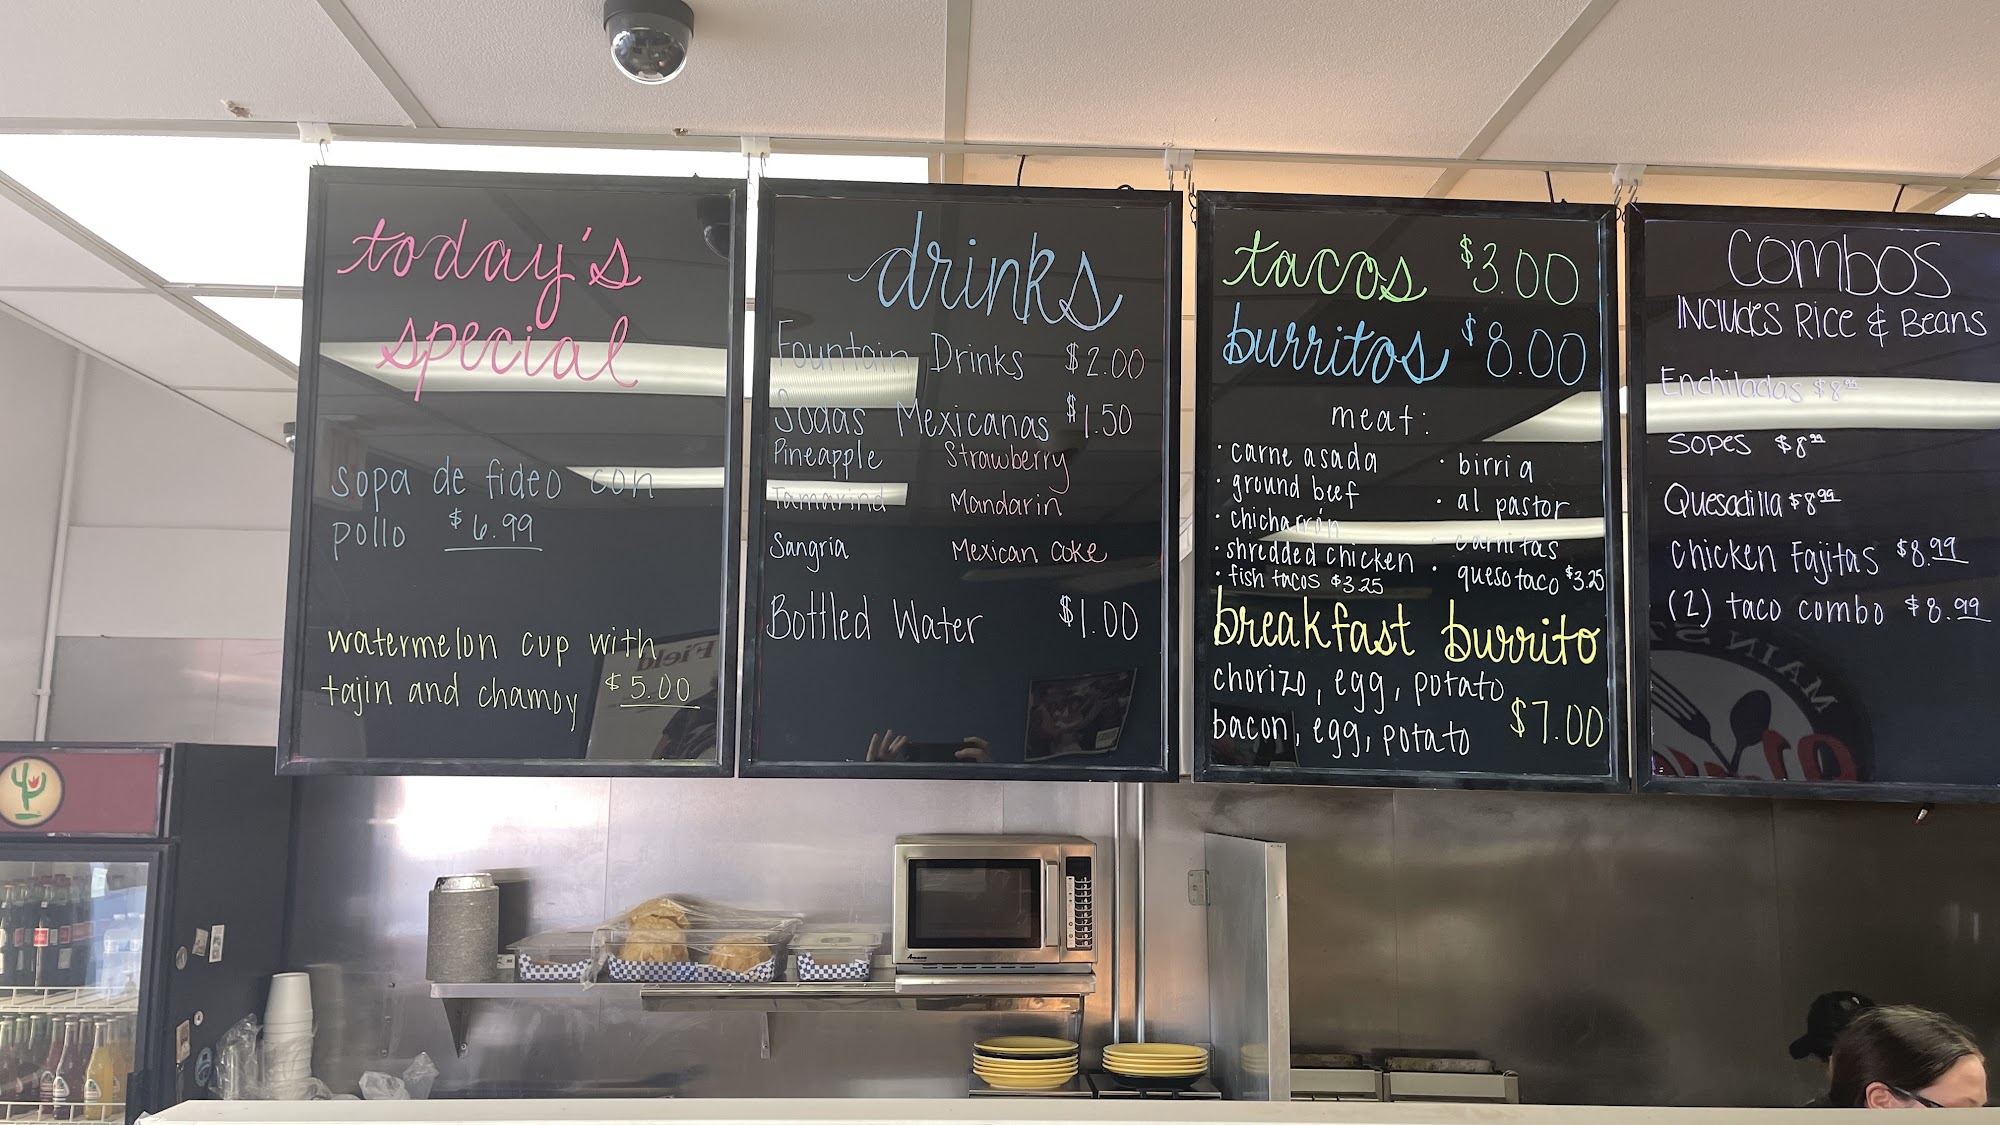 today's
special
sopa de fideo con
pollo $6.99
watermelon cup with
tajin and chamoy $5.00
drinks
Fountain Drinks $2.00
Sodas Mexicanas $1.50
Pineapple Strawberry
Tamarind Mandarin
Sangria Mexican Coke
Bottled Water $1.00
tacos $3.00
burritos $8.00
meat:
· carne asada · birria
· ground beef · al pastor
· chicharrón · carnitas
· shredded chicken · queso taco $3.25
· fish tacos $3.25
breakfast burrito
chorizo, egg, potato
bacon, egg, potato $7.00
COMBOS
INCludes Rice & Beans
Enchiladas $8.99
Sopes $8.99
Quesadilla $8.99
Chicken Fajitas $8.99
(2) taco combo $8.99
Field
MAIN ST